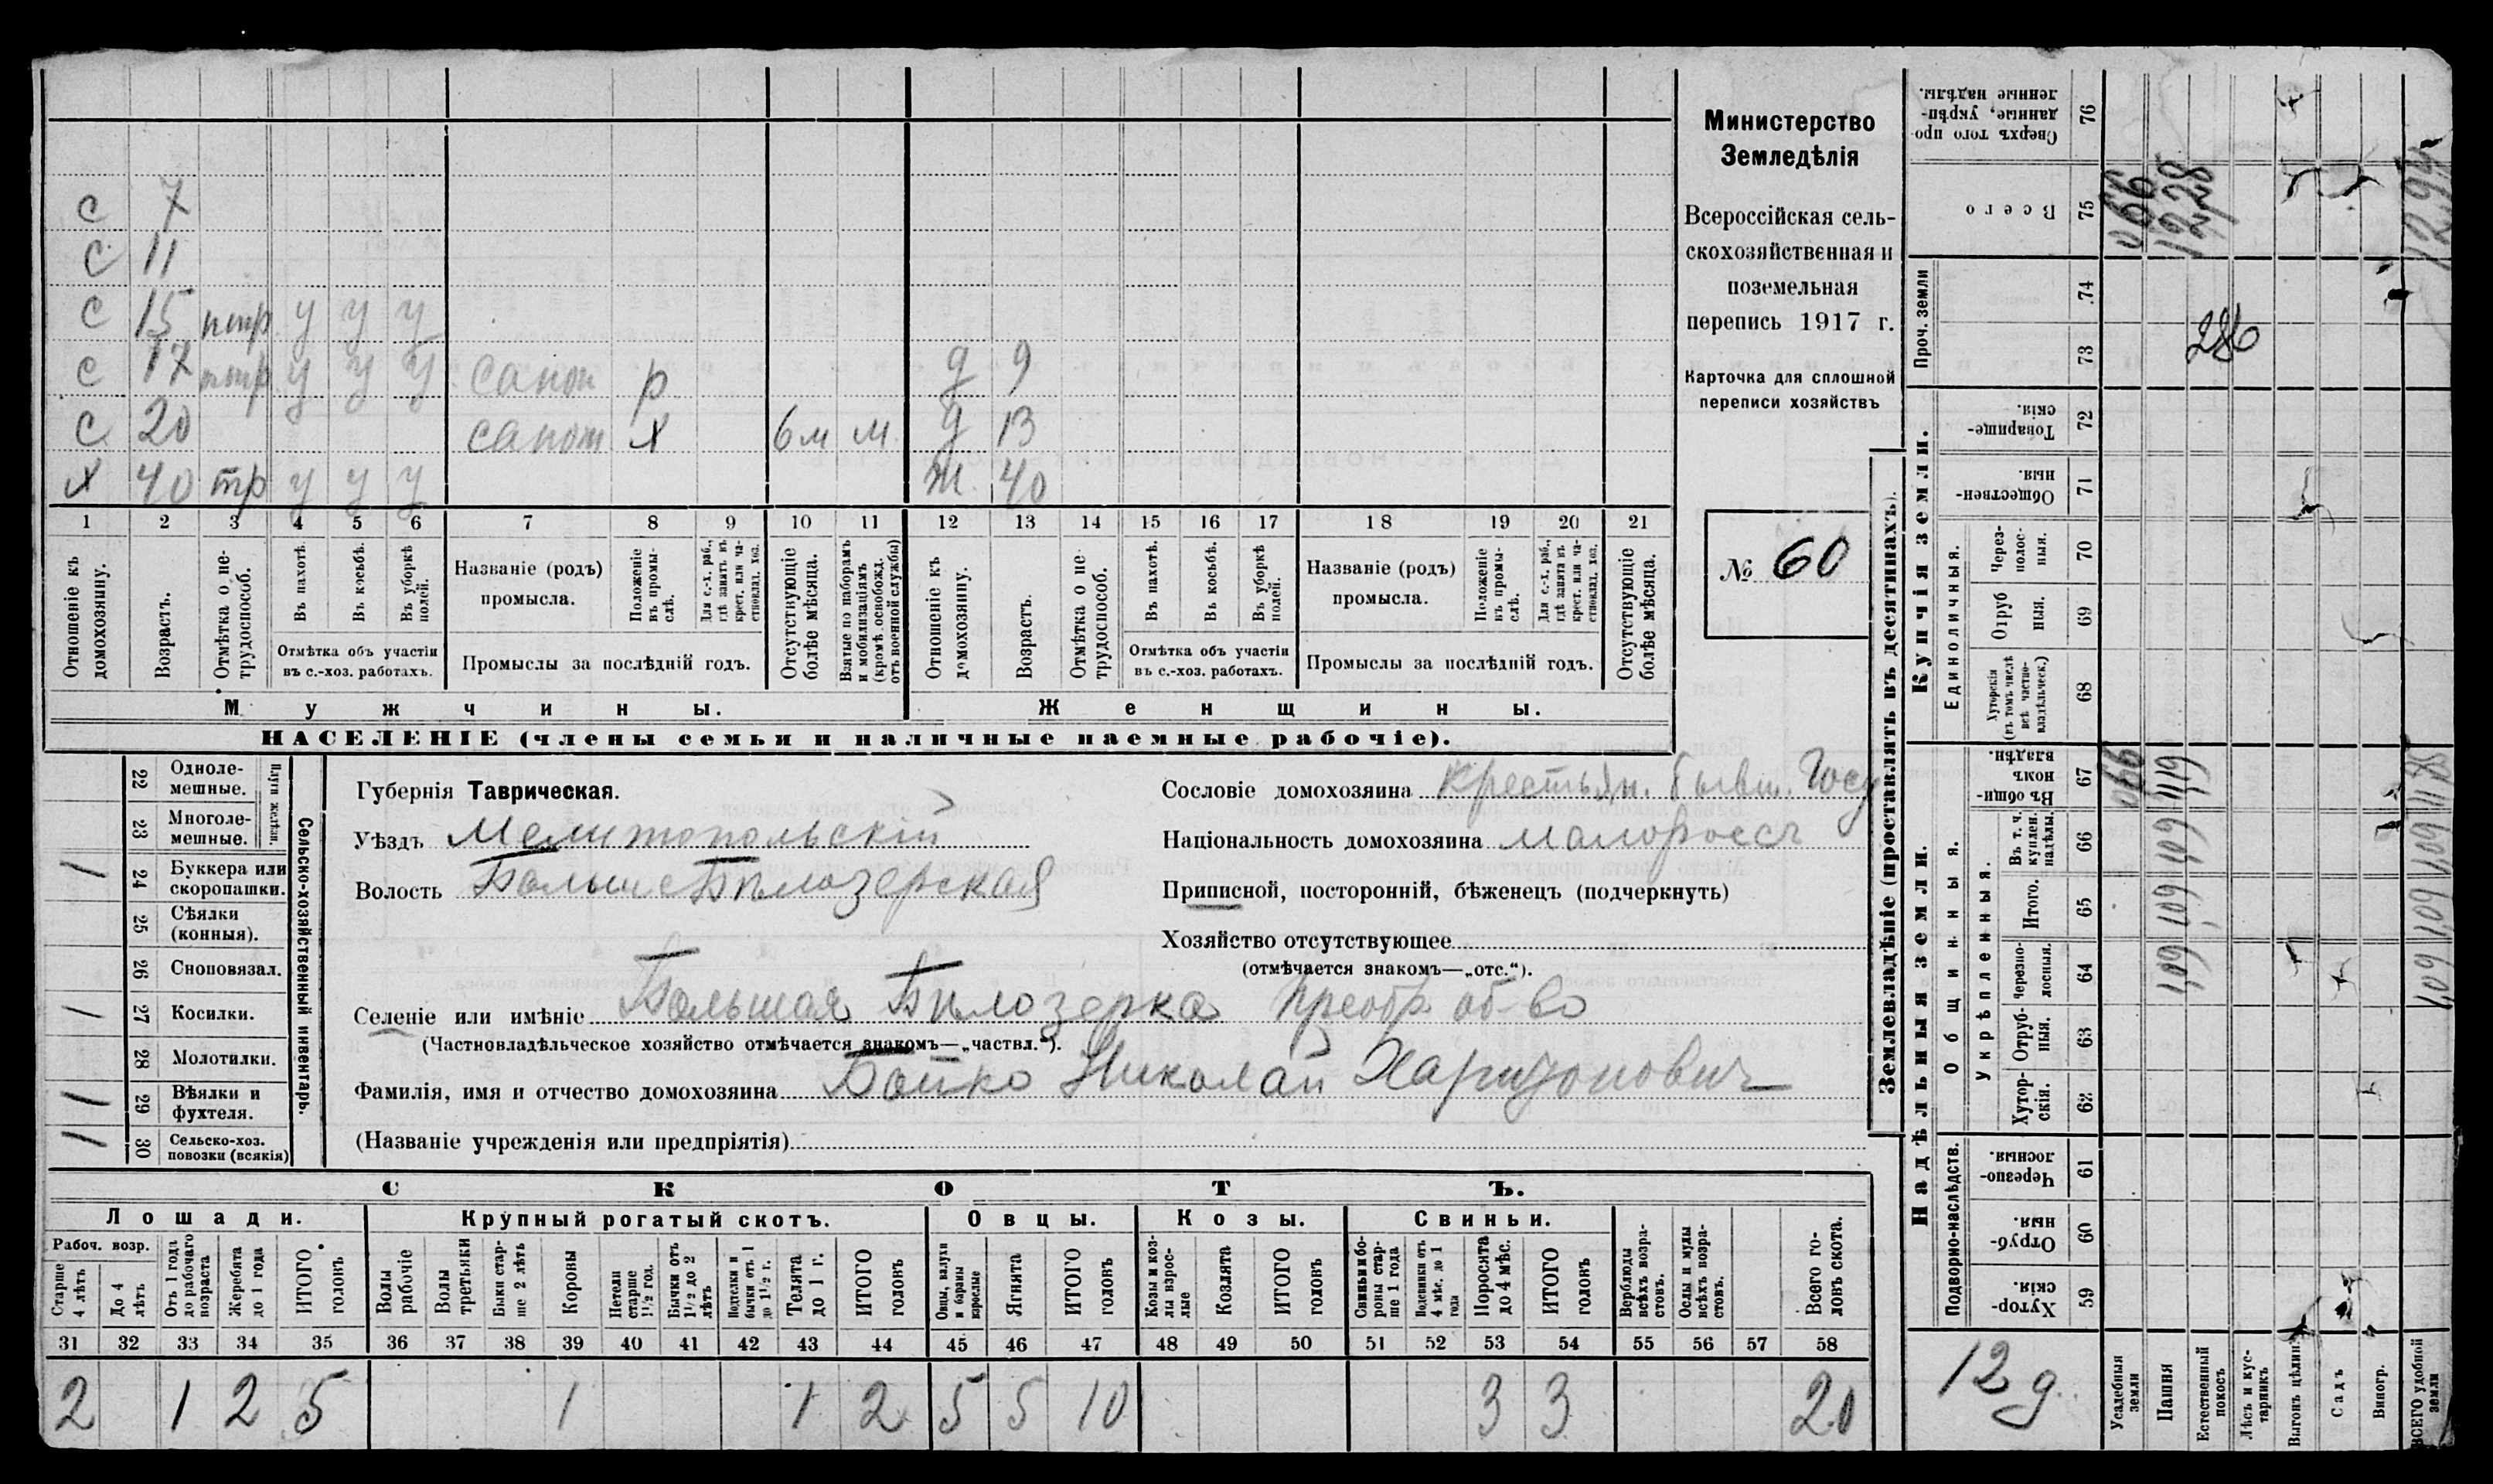 с 7
с 11
с 15 нтр у у у
с 17 нтр у у у сапож р д 9
с 20 сапож х 6м м д 13
х 40 тр у у у ж 40
1 2 3 4 5 6 7 8 9 10 11 12 13 14 15 16 17 18 19 20 21
Отношеніе къ домохозяину.
Возрастъ.
Отмѣтка о нетрудоспособ.
Въ пахотѣ.
Въ косьбѣ.
Въ уборкѣ полей.
Отмѣтка объ участіи
въ с.-хоз. работахъ.
Названіе (родъ)
промысла.
Положеніе въ промыслѣ.
Для с.-х. раб., гдѣ занятъ въ крест. или частновлад. хоз.
Промыслы за послѣдній годъ.
Отсутствующіе болѣе мѣсяца.
Взятые по наборамъ и мобилизаціямъ (кромѣ освобожд. отъ военной службы)
Отношеніе къ домохозяину.
Возрастъ.
Отмѣтка о нетрудоспособ.
Въ пахотѣ.
Въ косьбѣ.
Въ уборкѣ полей.
Отмѣтка объ участіи
въ с.-хоз. работахъ.
Названіе (родъ)
промысла.
Положеніе въ промыслѣ.
Для с.-х. раб., гдѣ занята въ крест. или частновлад. хоз.
Промыслы за послѣдній годъ.
Отсутствующіе болѣе мѣсяца.
Мужчины. Женщины.
НАСЕЛЕНІЕ (члены семьи и наличные наемные рабочіе).
Министерство
Земледѣлія
Всероссійская сель-
скохозяйственная и
поземельная
перепись 1917 г.
Карточка для сплошной
переписи хозяйствъ
№ 60
22 Однолемешные.
23 Многолемешные.
Плуги желѣзн.
1 24 Буккера или скоропашки.
25 Сѣялки (конныя).
26 Сноповязал.
1 27 Косилки.
28 Молотилки.
1 29 Вѣялки и фухтеля.
1 30 Сельско-хоз. повозки (всякія)
Сельско-хозяйственный инвентарь.
Губернія Таврическая.
Уѣздъ Мелитопольскій
Волость Больше Бѣлозерская
Сословіе домохозяина Крестьян. бывш. Госу
Національность домохозяина малороссъ
Приписной, посторонній, бѣженецъ (подчеркнуть)
Хозяйство отсутствующее
(отмѣчается знакомъ—„отс.“).
Селеніе или имѣніе Большая Бѣлозерка Преобр. об-во
(Частновладѣльческое хозяйство отмѣчается знакомъ—„частвл.“).
Фамилія, имя и отчество домохозяина Бойко Николай Харитонович
(Названіе учрежденія или предпріятія)
СКОТЪ.
Лошади. Крупный рогатый скотъ. Овцы. Козы. Свиньи.
Рабоч. возр.
Старше 4 лѣтъ
До 4 лѣтъ
Отъ 1 года до рабочаго возраста
Жеребята до 1 года
ИТОГО головъ
Волы рабочіе
Волы третьяки
Быки старше 2 лѣтъ
Коровы
Нетели старше 1½ год.
Бычки отъ 1½ до 2 лѣтъ
Подтелки и бычки отъ 1 до 1½ г.
Телята до 1 г.
ИТОГО головъ
Овцы, валухи и бараны взрослые
Ягнята
ИТОГО головъ
Козы и козлы взрослые
Козлята
ИТОГО головъ
Свиньи и бороны старше 1 года
Подсвинки отъ 4 мѣс. до 1 года
Поросята до 4 мѣс.
ИТОГО головъ
Верблюды всѣхъ возрастовъ.
Ослы и мулы всѣхъ возрастовъ.
Всего головъ скота.
31 32 33 34 35 36 37 38 39 40 41 42 43 44 45 46 47 48 49 50 51 52 53 54 55 56 57 58
2 1 2 5 1 1 2 5 5 10 3 3 20
Землевладѣніе (проставлять въ десятинахъ).
Сверхъ того проданные, укрѣпленные надѣлы. 76
Всего 75 066 1228 1294
Проч. земли 74 73 286
Купчія земли.
Товарищескія. 72
Общественныя. 71
Единоличныя.
Черезполосныя. 70
Отрубныя. 69
Хуторскія (въ томъ числѣ всѣ частновладѣльческ.) 68
Надѣльныя земли.
Общинныя.
Въ общинномъ владѣн. 67 066 1119 1185
Укрѣпленныя.
Въ т. ч. куплен. надѣлы. 66 109 109
Итого. 65 109 109
Черезполосныя. 64 109 109
Отрубныя. 63
Хуторскія. 62
Подворно-наслѣдств.
Черезполосныя. 61
Отрубныя. 60
Хуторскія. 59
12 д.
Усадебныя земли
Пашня
Естественный покосъ
Лѣсъ и кустарникъ
Выгонъ цѣлин.
Садъ
Виногр.
ВСЕГО удобной земли